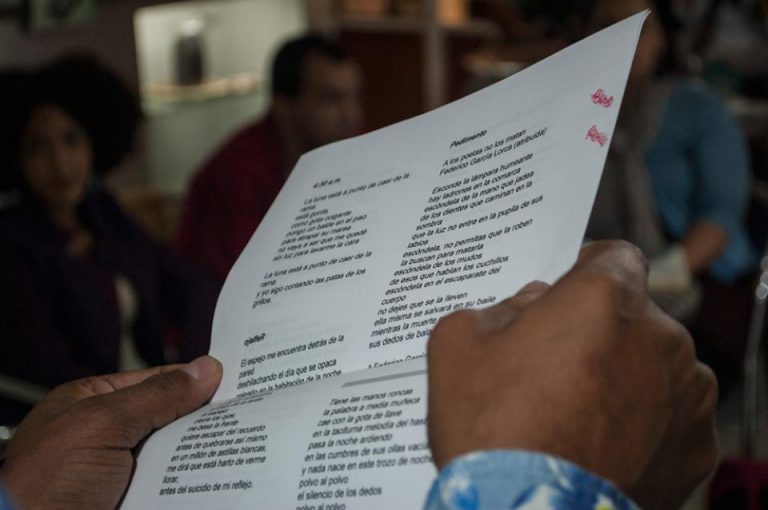 4.30 a.m.
La luna está a punto de caer de la
rama
está gorda,
como gota colgante
pongo un balde en el piso
para atrapar su marea
no vaya a ser que me quedé
sin luz para lavarme la cara
La luna está a punto de caer de la
rama
y yo sigo contando las patas de los
grillos.
ojelfeR
El espejo me encuentra detrás de la
pared
deshilachando el día que se opaca
colgado en la habitación de la noche
me besa la frente
quiere escapar del recuerdo
antes de quebrarse así mismo
en un millón de astillas blancas,
me dirá que está harto de verme
llorar,
antes del suicidio de mi reflejo.
Pedimento
A los poetas no los matan
Federico García Lorca (atribuida)
Esconde la lámpara humeante
hay ladrones en la comarca
escóndela de la mano que jadea
de los dientes que caminan en la
sombra
que la luz no entre en la pupila de sus
labios
escóndela, no permitas que la roben
la buscan para matarla
escóndela de los mudos
de esos que hablan los cuchillos
escóndela en el escaparate del
cuerpo
no dejes que se la lleven
ella misma se salvará en su baile
mientras la muerte
sus dedos de bala
A Federico
Tiene las manos roncas
la palabra a media muñeca
cae con la gota de llave
en la taciturna melodía del
pasa la noche ardiendo
en las cumbres de sus ollas
y nada nace en este trozo de noche
polvo al polvo
el silencio de los dedos
polvo al polvo